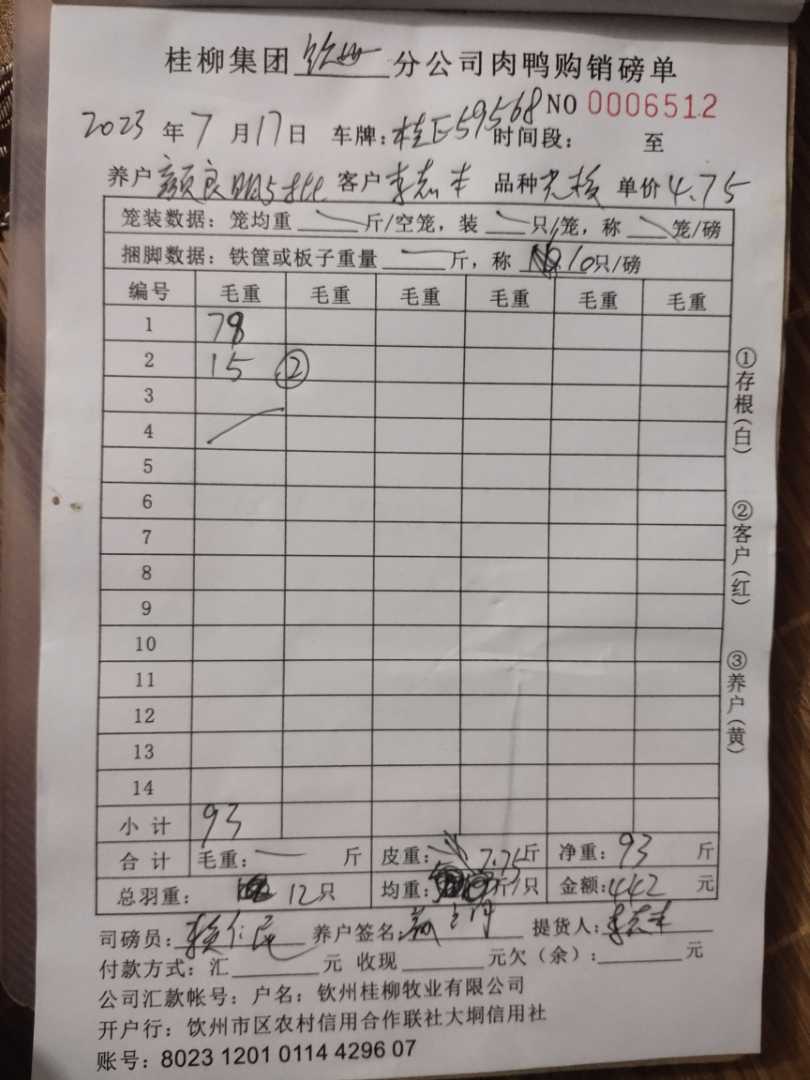 桂柳集团 钦州 分公司肉鸭购销磅单
NO 0006512
2023 年 7 月 17 日 车牌:桂E59568 时间段: 至
养户 颜良明 客户 李志丰 品种 单价 4.75
笼装数据: 笼均重 斤/空笼, 装 只/笼, 称 笼/磅
捆脚数据: 铁筐或板子重量 斤, 称 10只/磅
编号 毛重 毛重 毛重 毛重 毛重 毛重
1 78
2 15 ②
3
4
5
6
7
8
9
10
11
12
13
14
小计 93
合计 毛重: 斤 皮重: 7.75斤 净重: 93 斤
总羽重: 12只 均重: 斤/只 金额: 442 元
司磅员: 赖仁民 养户签名: 提货人: 李志丰
付款方式: 汇 元 收现 元欠(余): 元
公司汇款帐号: 户名: 钦州桂柳牧业有限公司
开户行: 钦州市区农村信用合作联社大垌信用社
账号: 8023 1201 0114 4296 07
①存根(白)
②客户(红)
③养户(黄)